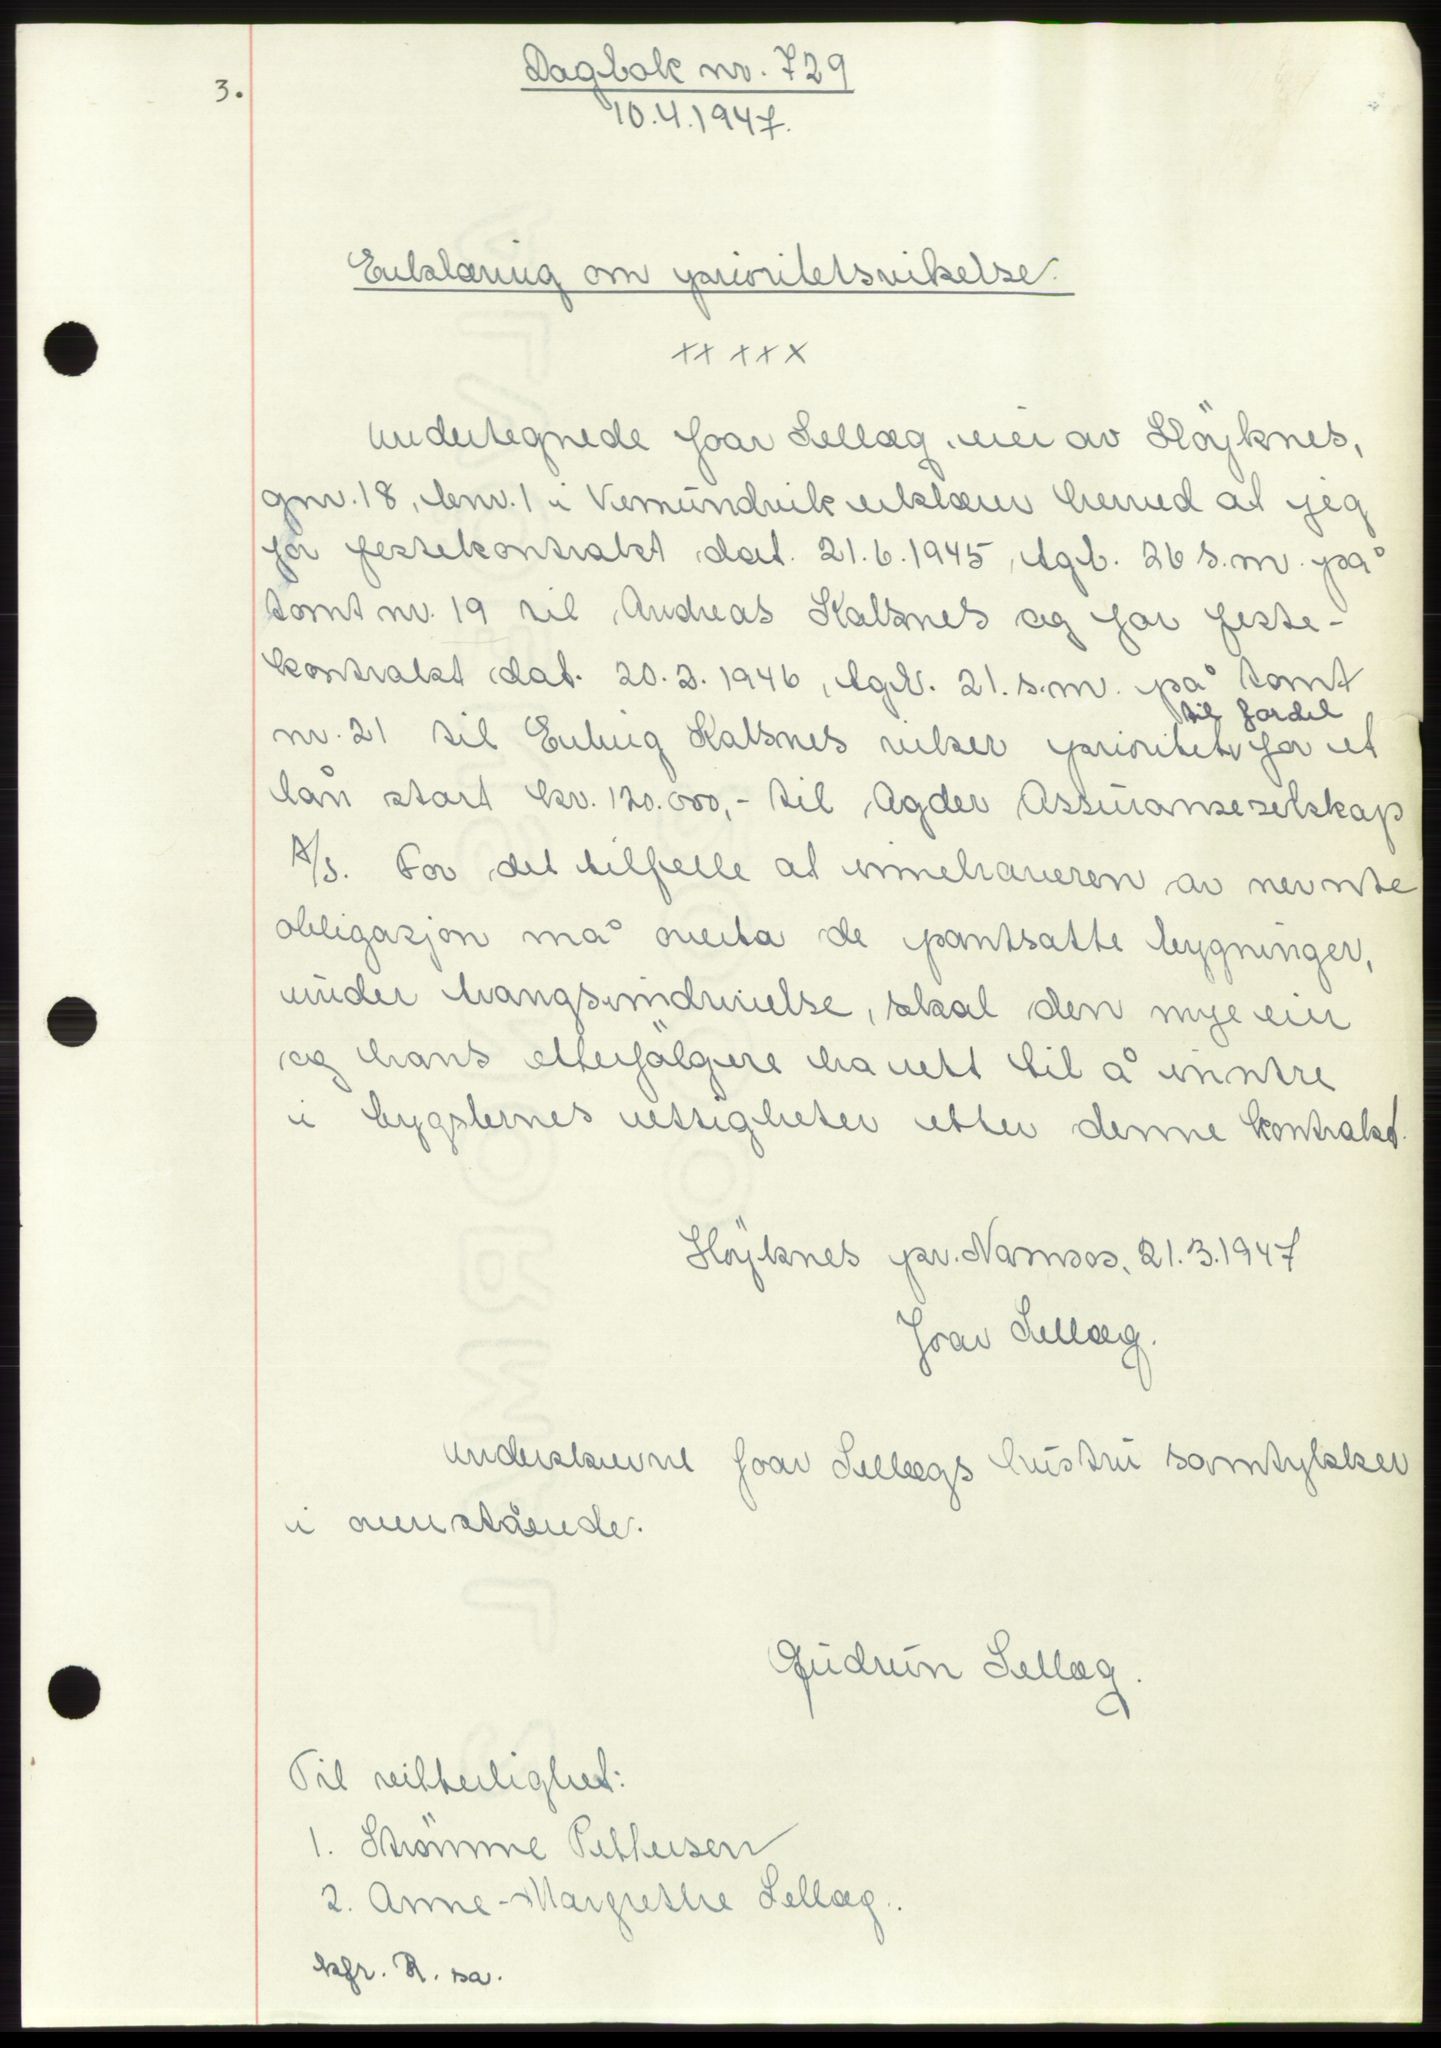 Dagbok nr. 729
3.
10.4.1947.
Erklæring om prioritetsvikelse.
xx xxx
Undertegnede Joar Sellæg, eier av Höyknes,
gnr. 18, bnr. 1 i Vemundvik erklærer herved at jeg
for festekontrakt dat. 21.6.1945, tgl. 26 s.m. på
tomt nr. 19 til Andreas Kalsnes og for feste-
kontrakt dat. 20.2.1946, tgl. 21. s.m. på tomt
til fordel
nr. 21 til Erling Kalsnes viker prioritet for et
lån stort kr. 120.000,- til Agder Assuranseselskap
A/S. For det tilfelle at innehaveren av nevnte
obligasjon må overta de pantsatte bygninger,
under tvangsinndrivelse, skal den nye eier
og hans etterfölgere ha rett til å inntre
i bygslernes rettigheter etter denne kontrakt.
Höyknes pr. Namsos, 21.3.1947
Joar Sellæg.
Underskrevne Joar Sellægs hustru samtykker
i ovenstående.
Gudrun Sellæg.
Til vitterlighet:
1. Strömme Pettersen
2. Anne-Margrethe Sellæg.
kfr. R. sa.